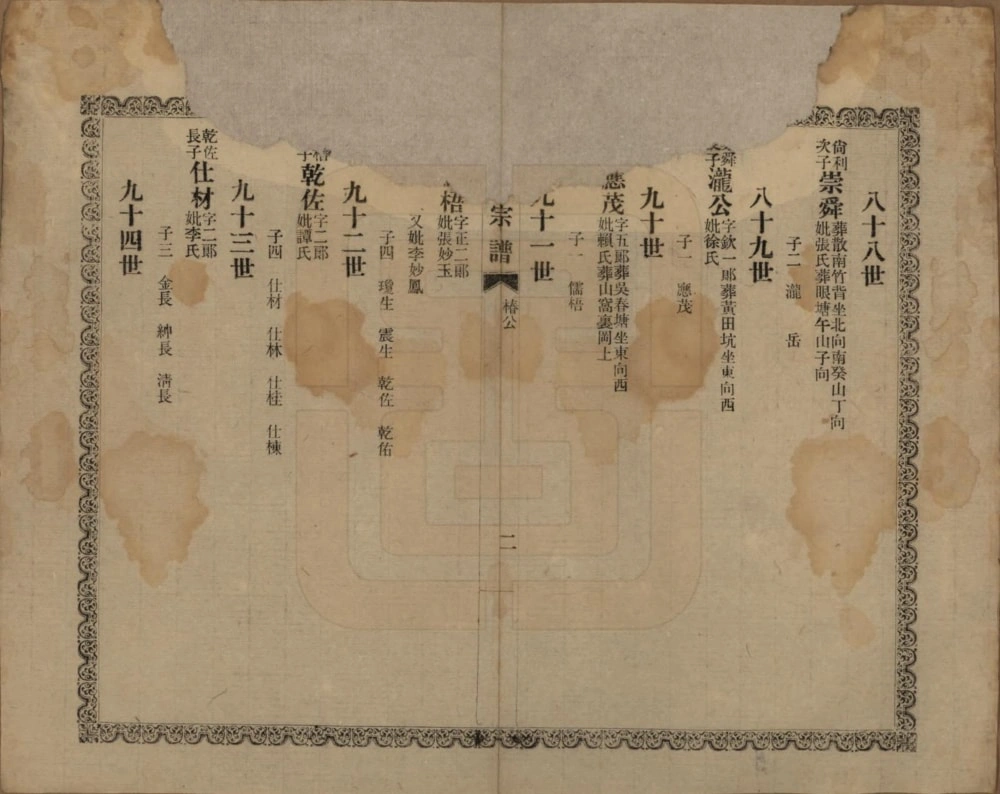 八十八世
尙利次子崇舜 葬散南竹背坐北向南癸山丁向
妣張氏葬眼塘午山子向
子二 瀧 岳
八十九世
舜子瀧公 字欽一郎葬黃田坑坐東向西
妣徐氏
子一 應茂
九十世
應茂 字五郎葬吳春塘坐東向西
妣賴氏葬山窩裏岡上
子一 儒梧
九十一世
梧 字正二郎
妣張妙玉
又妣李妙鳳
子四 瓊生 震生 乾佐 乾佑
九十二世
梧子乾佐 字二郎
妣譚氏
子四 仕材 仕林 仕桂 仕棟
九十三世
乾佐長子仕材 字二郎
妣李氏
子三 金長 紳長 淸長
九十四世
宗譜
椿公
二